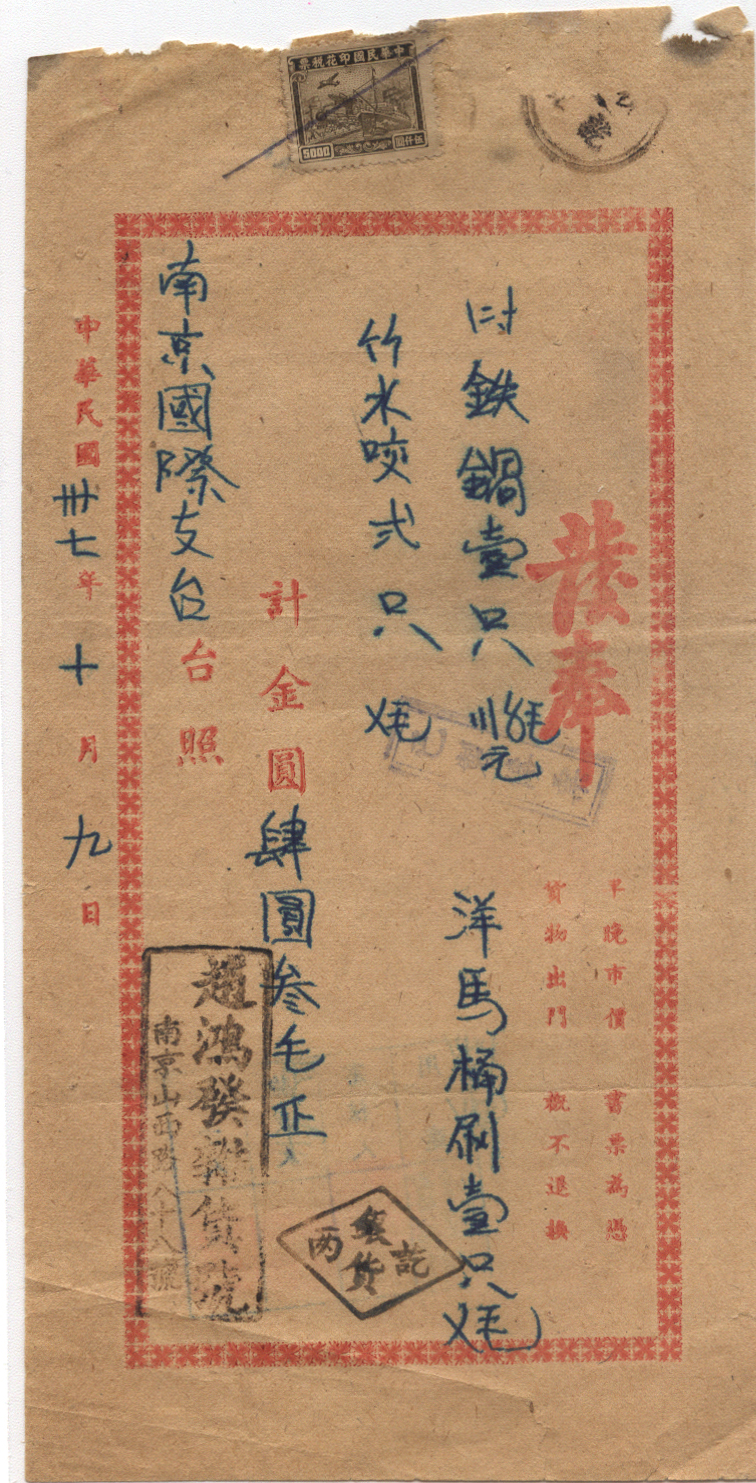 中華民國印花稅票
5000
伍仟圓
發奉
早晚市價 書票為憑
貨物出門 概不退換
計鉄鍋壹只
元
洋馬桶刷壹只
竹水咬弍只
計金圓肆圓叁毛正
南京國際支台台照
中華民國卅七年十月九日
趙鴻發雜貨號
南京山西路八十八號
銀貨两訖